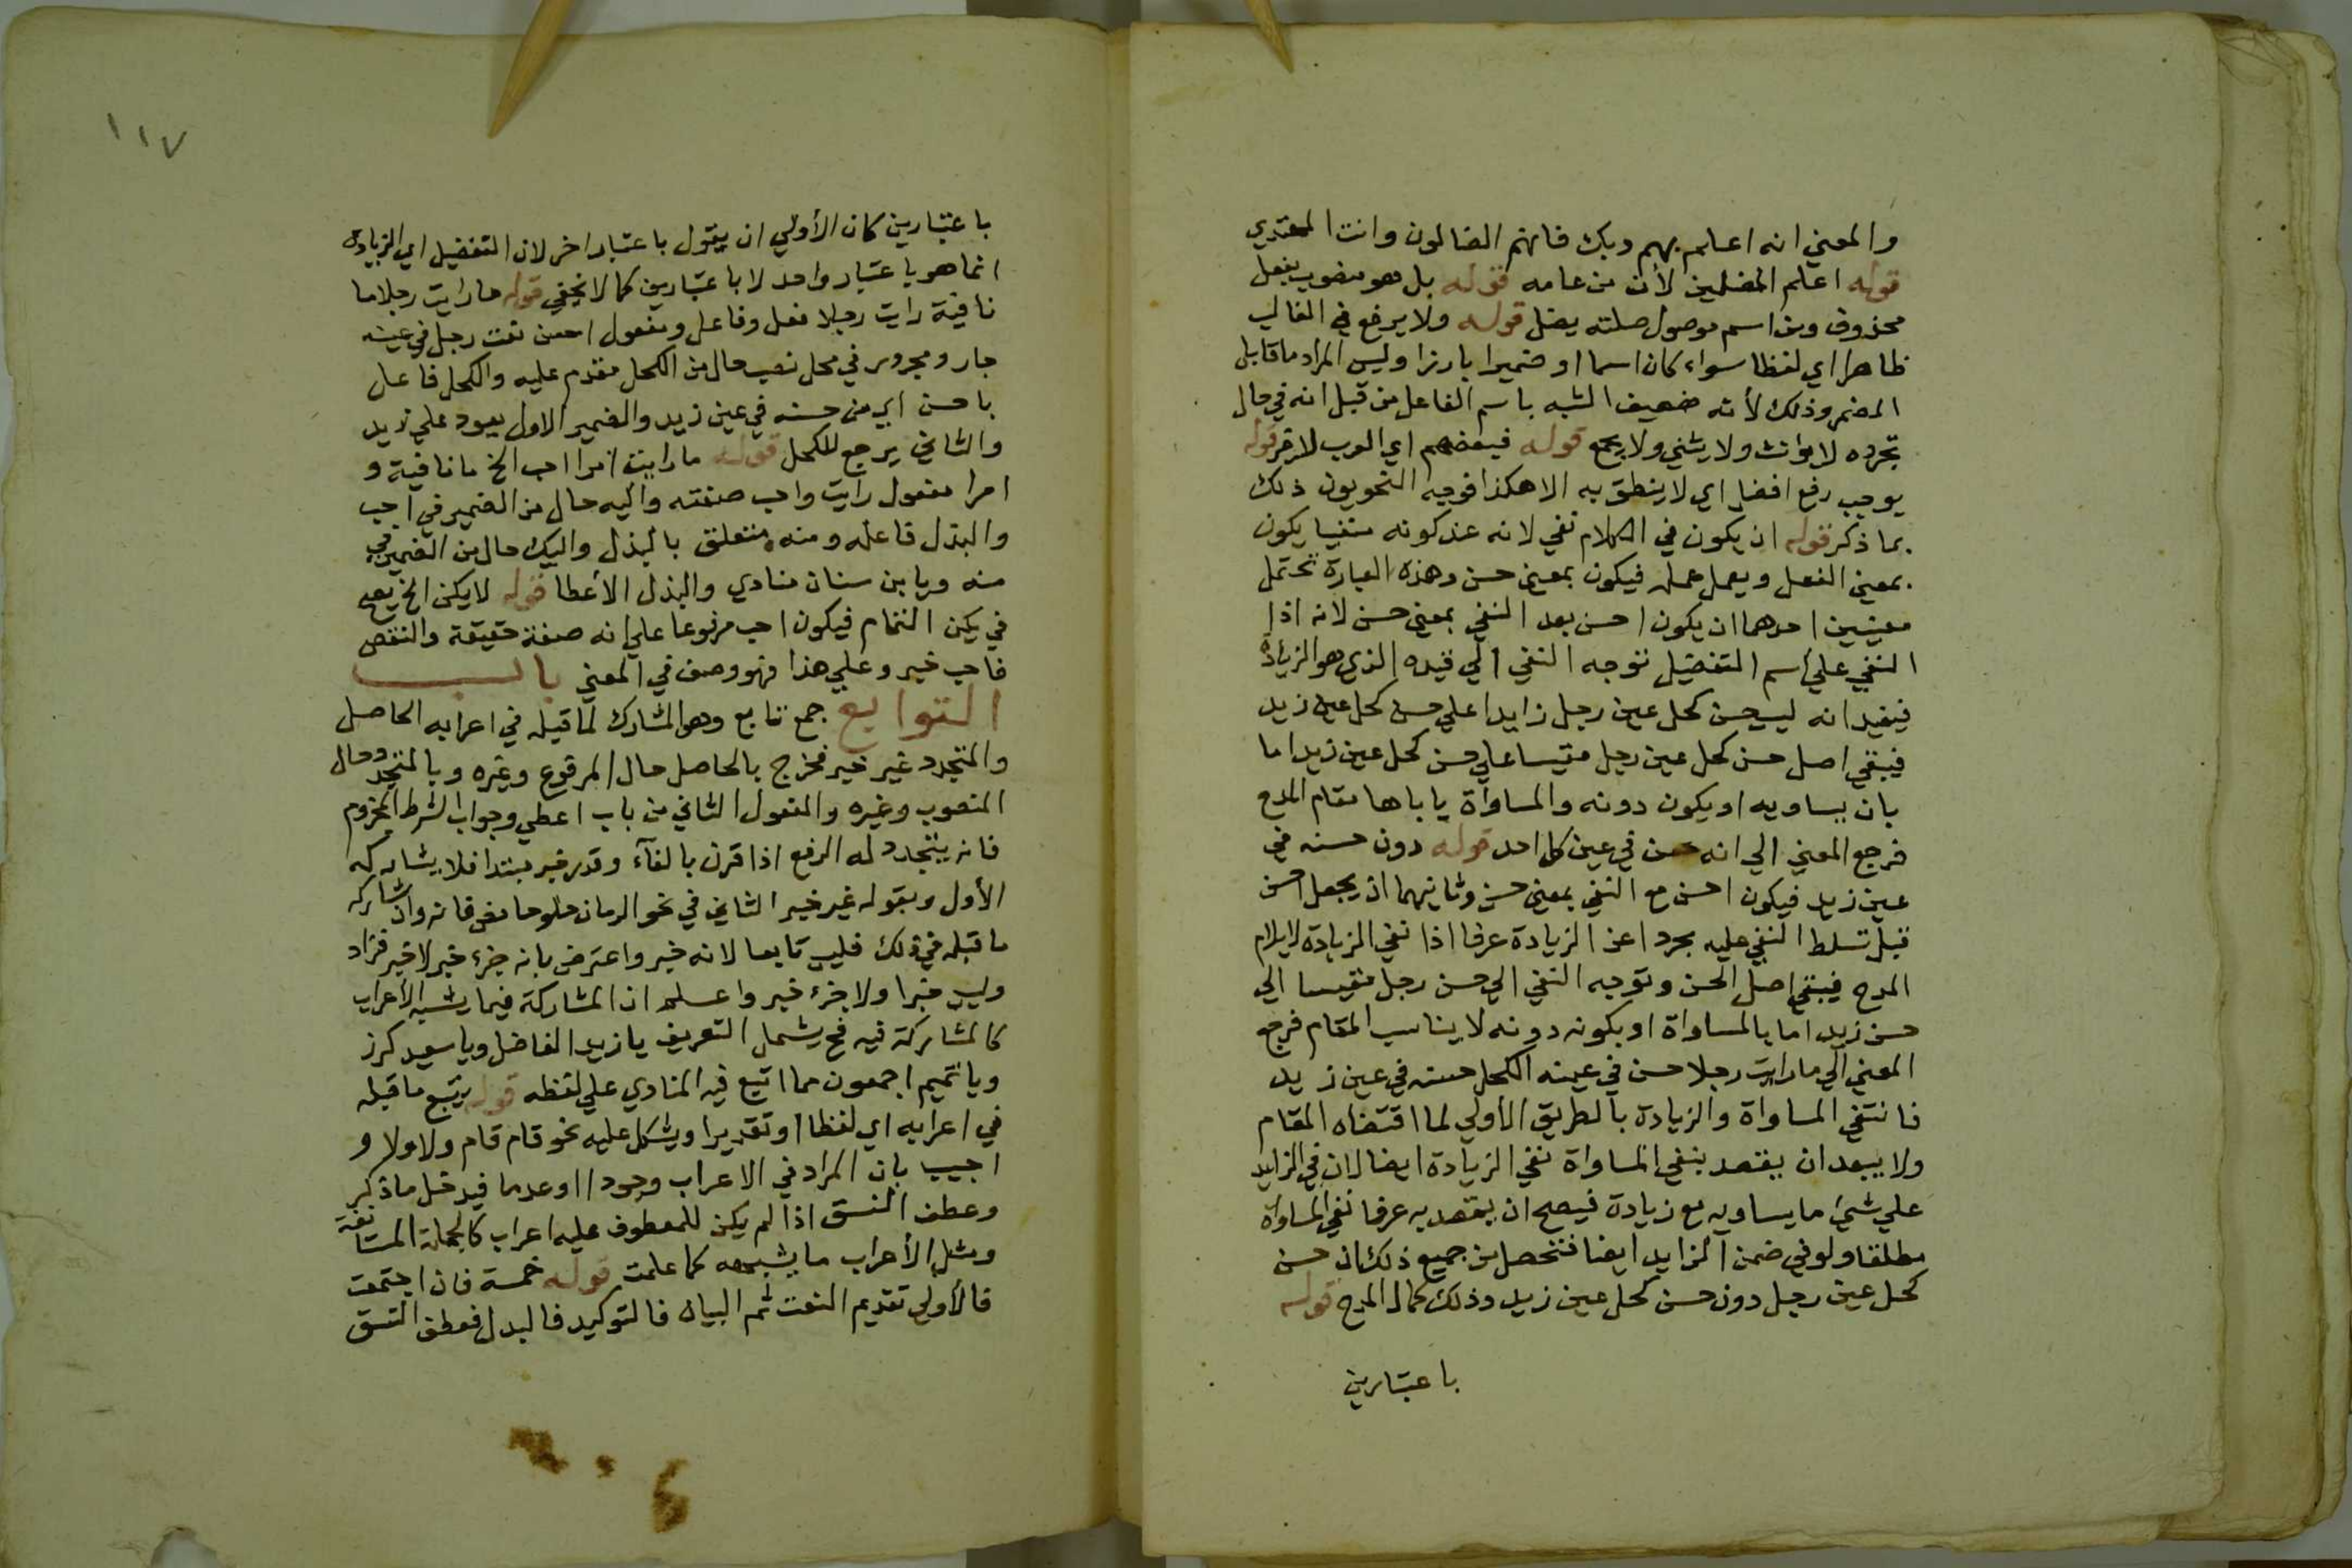 والمعني انه اعلم بهم وبك فانهم الضالون وانت المهتدي
قوله اعلم المضلين لأن من عامه قوله بل هو منصوب بفعل
محذوف ومن اسم موصول صلته يضل قوله ولا يرفع في الغالب
ظاهرا اي لفظا سواء كان اسما او ضميرا بارزا وليس المراد ما قابل
المضمر وذلك لأنه ضعيف الشبه باسم الفاعل من قبل انه في حال
تجرده لا يؤنث ولا يثني ولا يجمع قوله فبعضهم اي العرب قوله
يوجب رفع افضل اي لا ينطق به الا هكذا فوجه النحويون ذلك
بما ذكر قوله ان يكون في الكلام نفي لانه عند كونه منفيا يكون
بمعني الفعل ويعمل عمله فيكون بمعني حسن وهذه العبارة تحتمل
معنيين احدهما ان يكون احسن بعد النفي بمعني حسن لانه اذا
النفي علي اسم التفضيل توجه النفي الي قيده الذي هو الزيادة
فيفيد انه ليس حسن كحل عين رجل زايدا علي حسن كحل عين زيد
فيبقي اصل حسن كحل عين رجل مقيسا علي حسن كحل عين زيد اما
بان يساويه او يكون دونه والمساواة ياباها مقام المدح
فرجع المعني الي انه حسن في عين كل احد قوله دون حسنه في
عين زيد فيكون احسن مع النفي بمعني حسن وثانيهما ان يجعل احسن
قبل تسلط النفي عليه مجردا عن الزيادة عرفا اذا نفي الزيادة لا يلام
المدح فيبقي اصل الحسن وتوجه النفي الي حسن رجل مقيسا الي
حسن زيد اما بالمساواة او بكونه دونه لا يناسب المقام فرجع
المعني الي ما رايت رجلا حسن في عينه الكحل حسنه في عين زيد
فانتفي المساواة والزيادة بالطريق الأولي لما اقتضاه المقام
ولا يبعد ان يقصد بنفي المساواة نفي الزيادة ايضا لان في الزايد
علي شيء ما يساويه مع زيادة فيصح ان يقصد به عرفا نفي المساواة
مطلقا ولو في ضمن الزايد ايضا فتحصل من جميع ذلك ان حسن
كحل عين رجل دون حسن كحل عين زيد وذلك كمال المدح قوله
باعتبارين
١١٧
باعتبارين كان الأولي ان يقول باعتبار اخر لان التفضيل اي الزيادة
انما هو باعتبار واحد لا باعتبارين كما لا يخفي قوله ما رايت رجلا ما
نافية رايت رجلا فعل وفاعل ومفعول احسن نعت رجل في عينه
جار ومجرور في محل نصب حال من الكحل مقدم عليه والكحل فاعل
باحسن اي من حسنه في عين زيد والضمير الاول يعود علي زيد
والثاني يرجع للكحل قوله ما رايت امرا احب الخ ما نافية و
امرا مفعول رايت واحب صفته واليه حال من الضمير في احب
والبذل فاعله ومنه متعلق بالبذل واليك حال من الضمير في
منه ويا بن سنان منادي والبذل الأعطا قوله لا يكن الخ يصح
في يكن التمام فيكون احب مرفوعا علي انه صفة حقيقة والنقص
فاحب خبر وعلي هذا فهو وصف في المعني باب
التوابع جمع تابع وهو المشارك لما قبله في اعرابه الحاصل
والمتجدد غير خبر فخرج بالحاصل حال المرفوع وغيره وبالمتجدد حال
المنصوب وغيره والمفعول الثاني من باب اعطي وجواب الشرط المجزوم
فانه يتجدد له الرفع اذا قرن بالفآء وقدر خبر مبتدا فلا يشاركه
الأول وبقوله غير خبر الثاني في نحو الرمان حلو حامض فانه وان شاركه
ما قبله في ذلك فليس تابعا لانه خبر واعترض بانه جزء خبر لا خبر فزاد
وليس خبرا ولا جزء خبر واعلم ان المشاركة فيما يشبه الأعراب
كالمشاركة فيه فح يشمل التعريف يا زيد الفاضل ويا سعيد كرز
ويا تميم اجمعون مما اتبع فيه المنادي علي لفظه قوله يتبع ما قبله
في اعرابه اي لفظا او تقديرا ويشكل عليه نحو قام قام ولا ولا و
اجيب بان المراد في الاعراب وجودا او عدما فيدخل ما ذكر
وعطف النسق اذا لم يكن للمعطوف عليه اعراب كالجملة المستانفة
ومثل الأعراب ما يشبهه كما علمت قوله خمسة فان اجتمعت
فالأولي تقديم النعت ثم البيان فالتوكيد فالبدل فعطف النسق